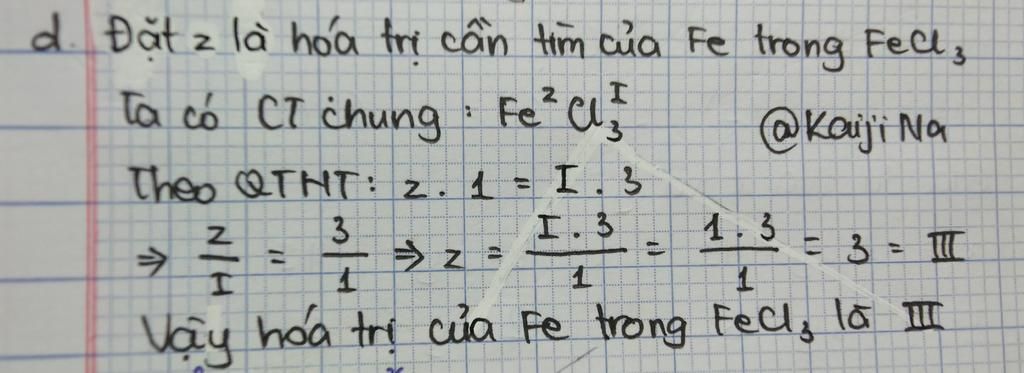 d. Đặt z là hóa trị cần tìm của Fe trong FeCl₃
Ta có CT chung: Fe^z Cl₃^I
@Kaiji Na
Theo QTHT: z . 1 = I . 3
⇒ z/I = 3/1 ⇒ z = (I . 3)/1 = (1 . 3)/1 = 3 = III
Vậy hóa trị của Fe trong FeCl₃ là III